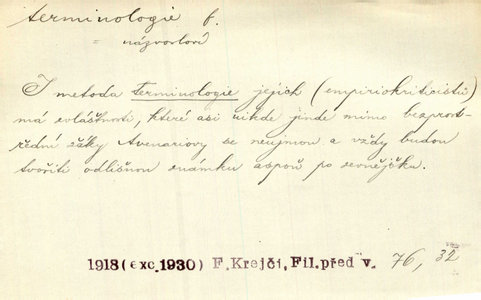 terminologie f.
= názvosloví
I metoda terminologie jejich (empiriokriticistů)
má zvláštnosti, které asi nikde jinde mimo bezprost-
řední žáky Avenariovy se neujmou a vždy budou
tvořiti odlišnou známku aspoň po zevnějšku.
1918 (exc. 1930) F. Krejčí, Fil. před v. 76, 32